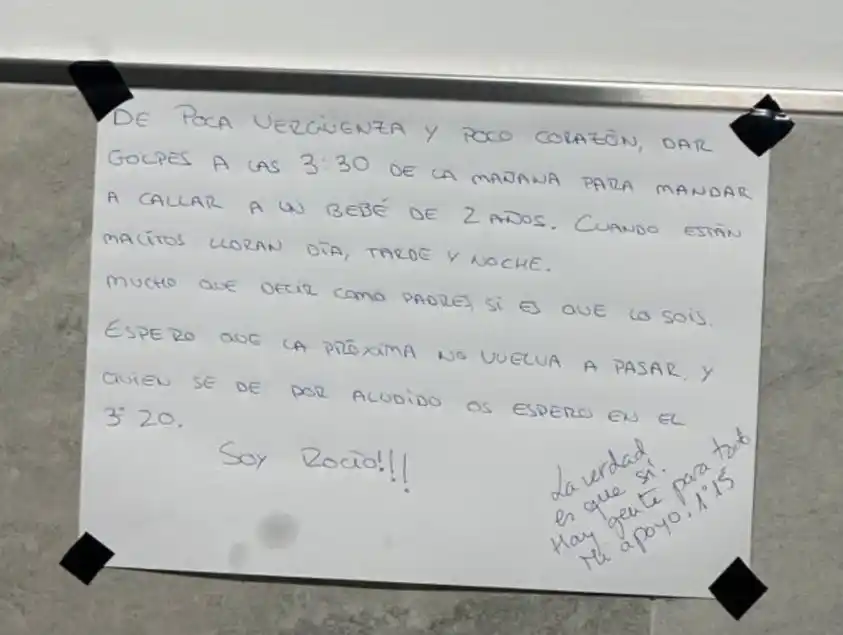 DE POCA VERGÜENZA Y POCO CORAZÓN, DAR
GOLPES A LAS 3:30 DE LA MAÑANA PARA MANDAR
A CALLAR A UN BEBÉ DE 2 AÑOS. CUANDO ESTÁN
MALITOS LLORAN DÍA, TARDE Y NOCHE.
MUCHO QUE DECIR COMO PADRES, SI ES QUE LO SOIS.
ESPERO QUE LA PRÓXIMA NO VUELVA A PASAR, Y
QUIEN SE DE POR ALUDIDO OS ESPERO EN EL
3º 20.
SOY ROCÍO!!!
La verdad
es que sí.
Hay gente para todo
Mi apoyo. 1º15